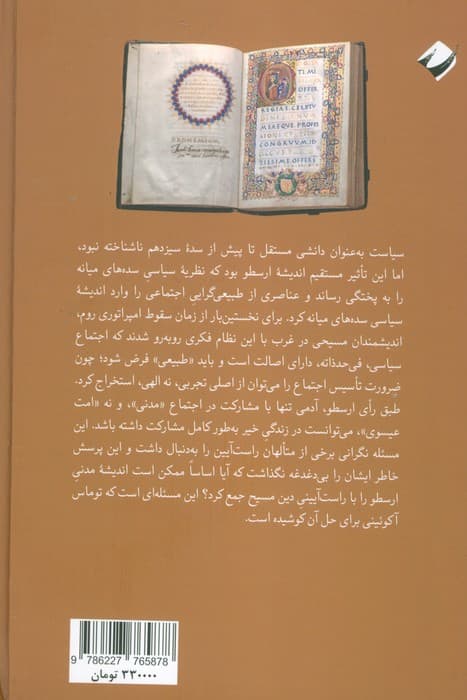 TIMI
OFFER
REGIAE CELSITU
CONGRVVM, ID
TISSIME OFFERE
سیاست به‌عنوان دانشی مستقل تا پیش از سدهٔ سیزدهم ناشناخته نبود،
اما این تأثیر مستقیم اندیشهٔ ارسطو بود که نظریهٔ سیاسیِ سده‌های میانه
را به پختگی رساند و عناصری از طبیعی‌گراییِ اجتماعی را وارد اندیشهٔ
سیاسی سده‌های میانه کرد. برای نخستین‌بار از زمان سقوط امپراتوری روم،
اندیشمندان مسیحی در غرب با این نظام فکری روبه‌رو شدند که اجتماع
سیاسی، فی‌حدذاته، دارای اصالت است و باید «طبیعی» فرض شود؛ چون
ضرورت تأسیس اجتماع را می‌توان از اصلی تجربی، نه الهی، استخراج کرد.
طبق رأی ارسطو، آدمی تنها با مشارکت در اجتماع «مدنی»، و نه «امت
عیسوی»، می‌توانست در زندگیِ خیر به‌طور کامل مشارکت داشته باشد. این
مسئله نگرانی برخی از متألهان راست‌آیین را به‌دنبال داشت و این پرسش
خاطر ایشان را بی‌دغدغه نگذاشت که آیا اساساً ممکن است اندیشهٔ مدنیِ
ارسطو را با راست‌آیینیِ دین مسیح جمع کرد؟ این مسئله‌ای است که توماس
آکوئینی برای حل آن کوشیده است.
9 786227 765878
۳۳۰۰۰۰ تومان